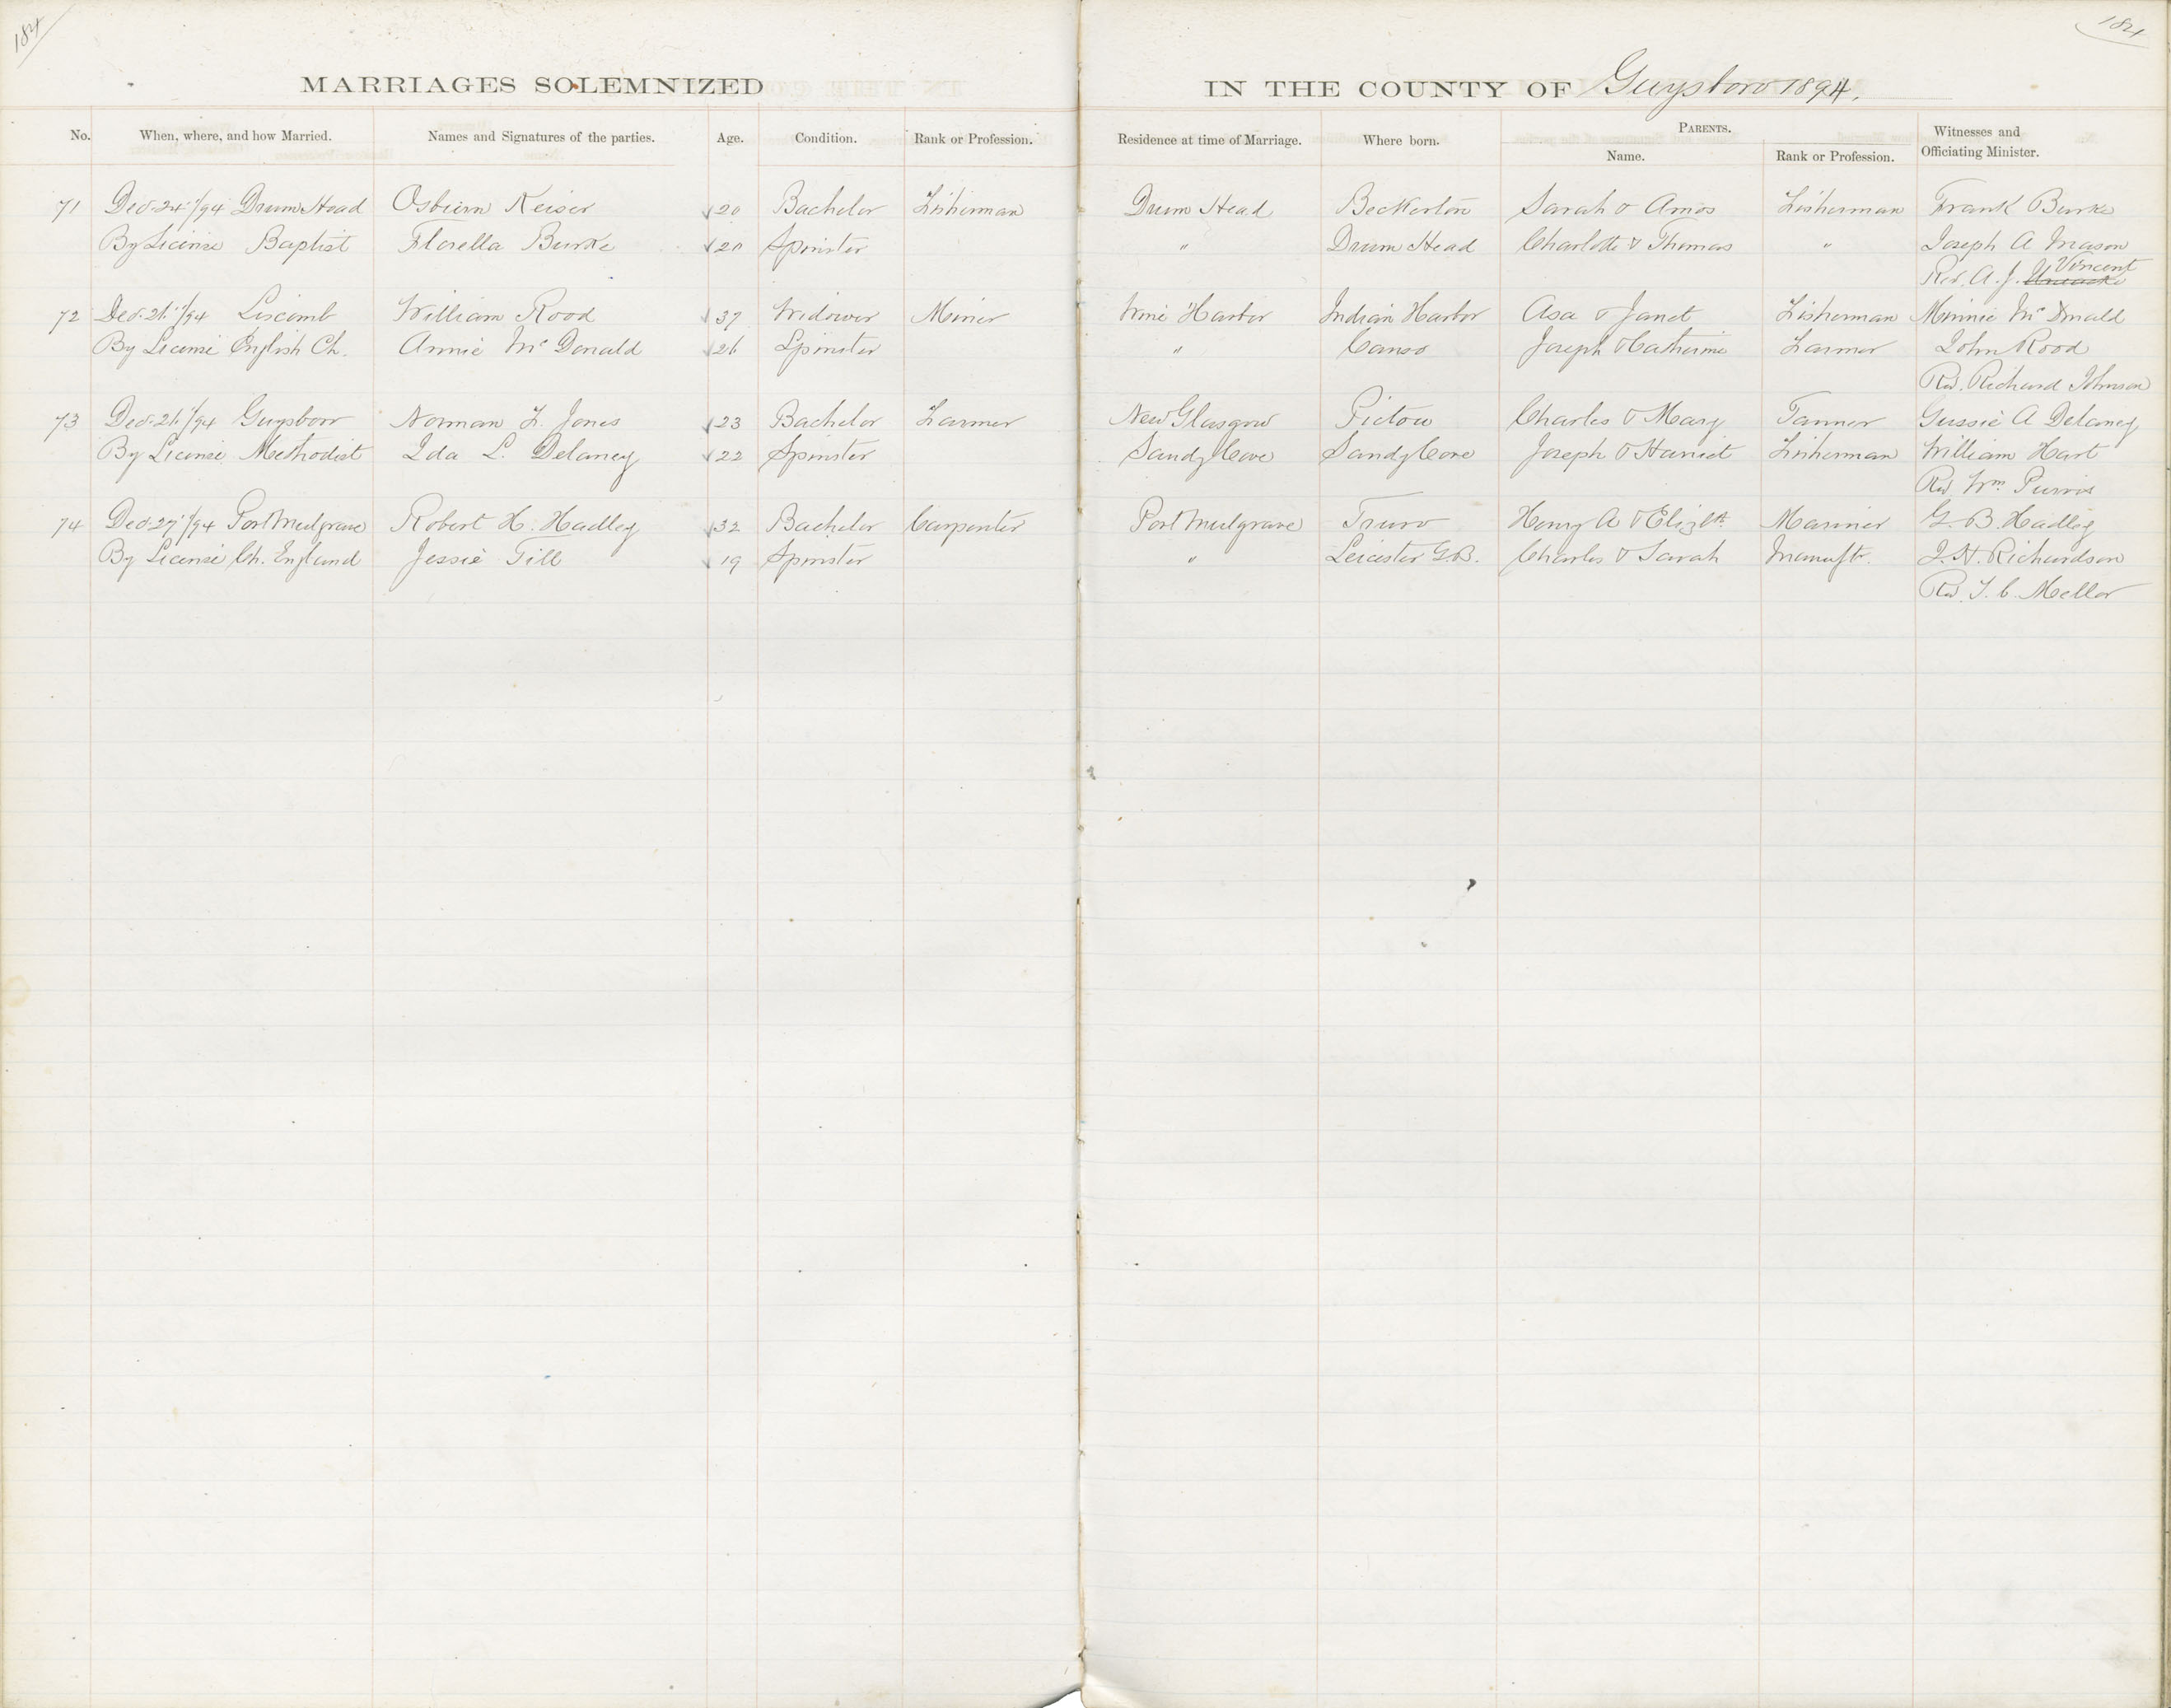 184
184
MARRIAGES SOLEMNIZED IN THE COUNTY OF Guysboro 1894.
No. When, where, and how Married. Names and Signatures of the parties. Age. Condition. Rank or Profession. Residence at time of Marriage. Where born. PARENTS. Name. Rank or Profession. Witnesses and Officiating Minister.
71 Dec. 24"/94 Drum Head Osbiern Keiser 20 Bachelor Fisherman Drum Head Beckerton Sarah & Amos Fisherman Frank Burke
By License Baptist Florella Burke 20 Spinster " Drum Head Charlotte & Thomas " Joseph A Mason
Rev. A. J. Vincent
72 Dec. 26"/94 Liscomb William Rood 37 Widower Miner Wine Harbor Indian Harbor Asa & Janet Fisherman Minnie McDonald
By License English Ch. Annie McDonald 26 Spinster " Canso Joseph & Catherine Farmer John Rood
Rev. Richard Johnson
73 Dec. 26"/94 Guysboro Norman F. Jones 23 Bachelor Farmer New Glasgow Pictou Charles & Mary Tanner Gussie A Delaney
By License Methodist Ida L. Delaney 22 Spinster Sandy Cove Sandy Cove Joseph & Harriet Fisherman William Hart
Rev. Wm. Purvis
74 Dec. 27"/94 Port Mulgrave Robert H. Hadley 32 Bachelor Carpenter Port Mulgrave Truro Henry A & Elizth. Mariner G. B. Hadley
By License Ch. England Jessie Till 19 Spinster " Leicester G.B. Charles & Sarah Manuft. J. H. Richardson
Rev. T. C. Mellor